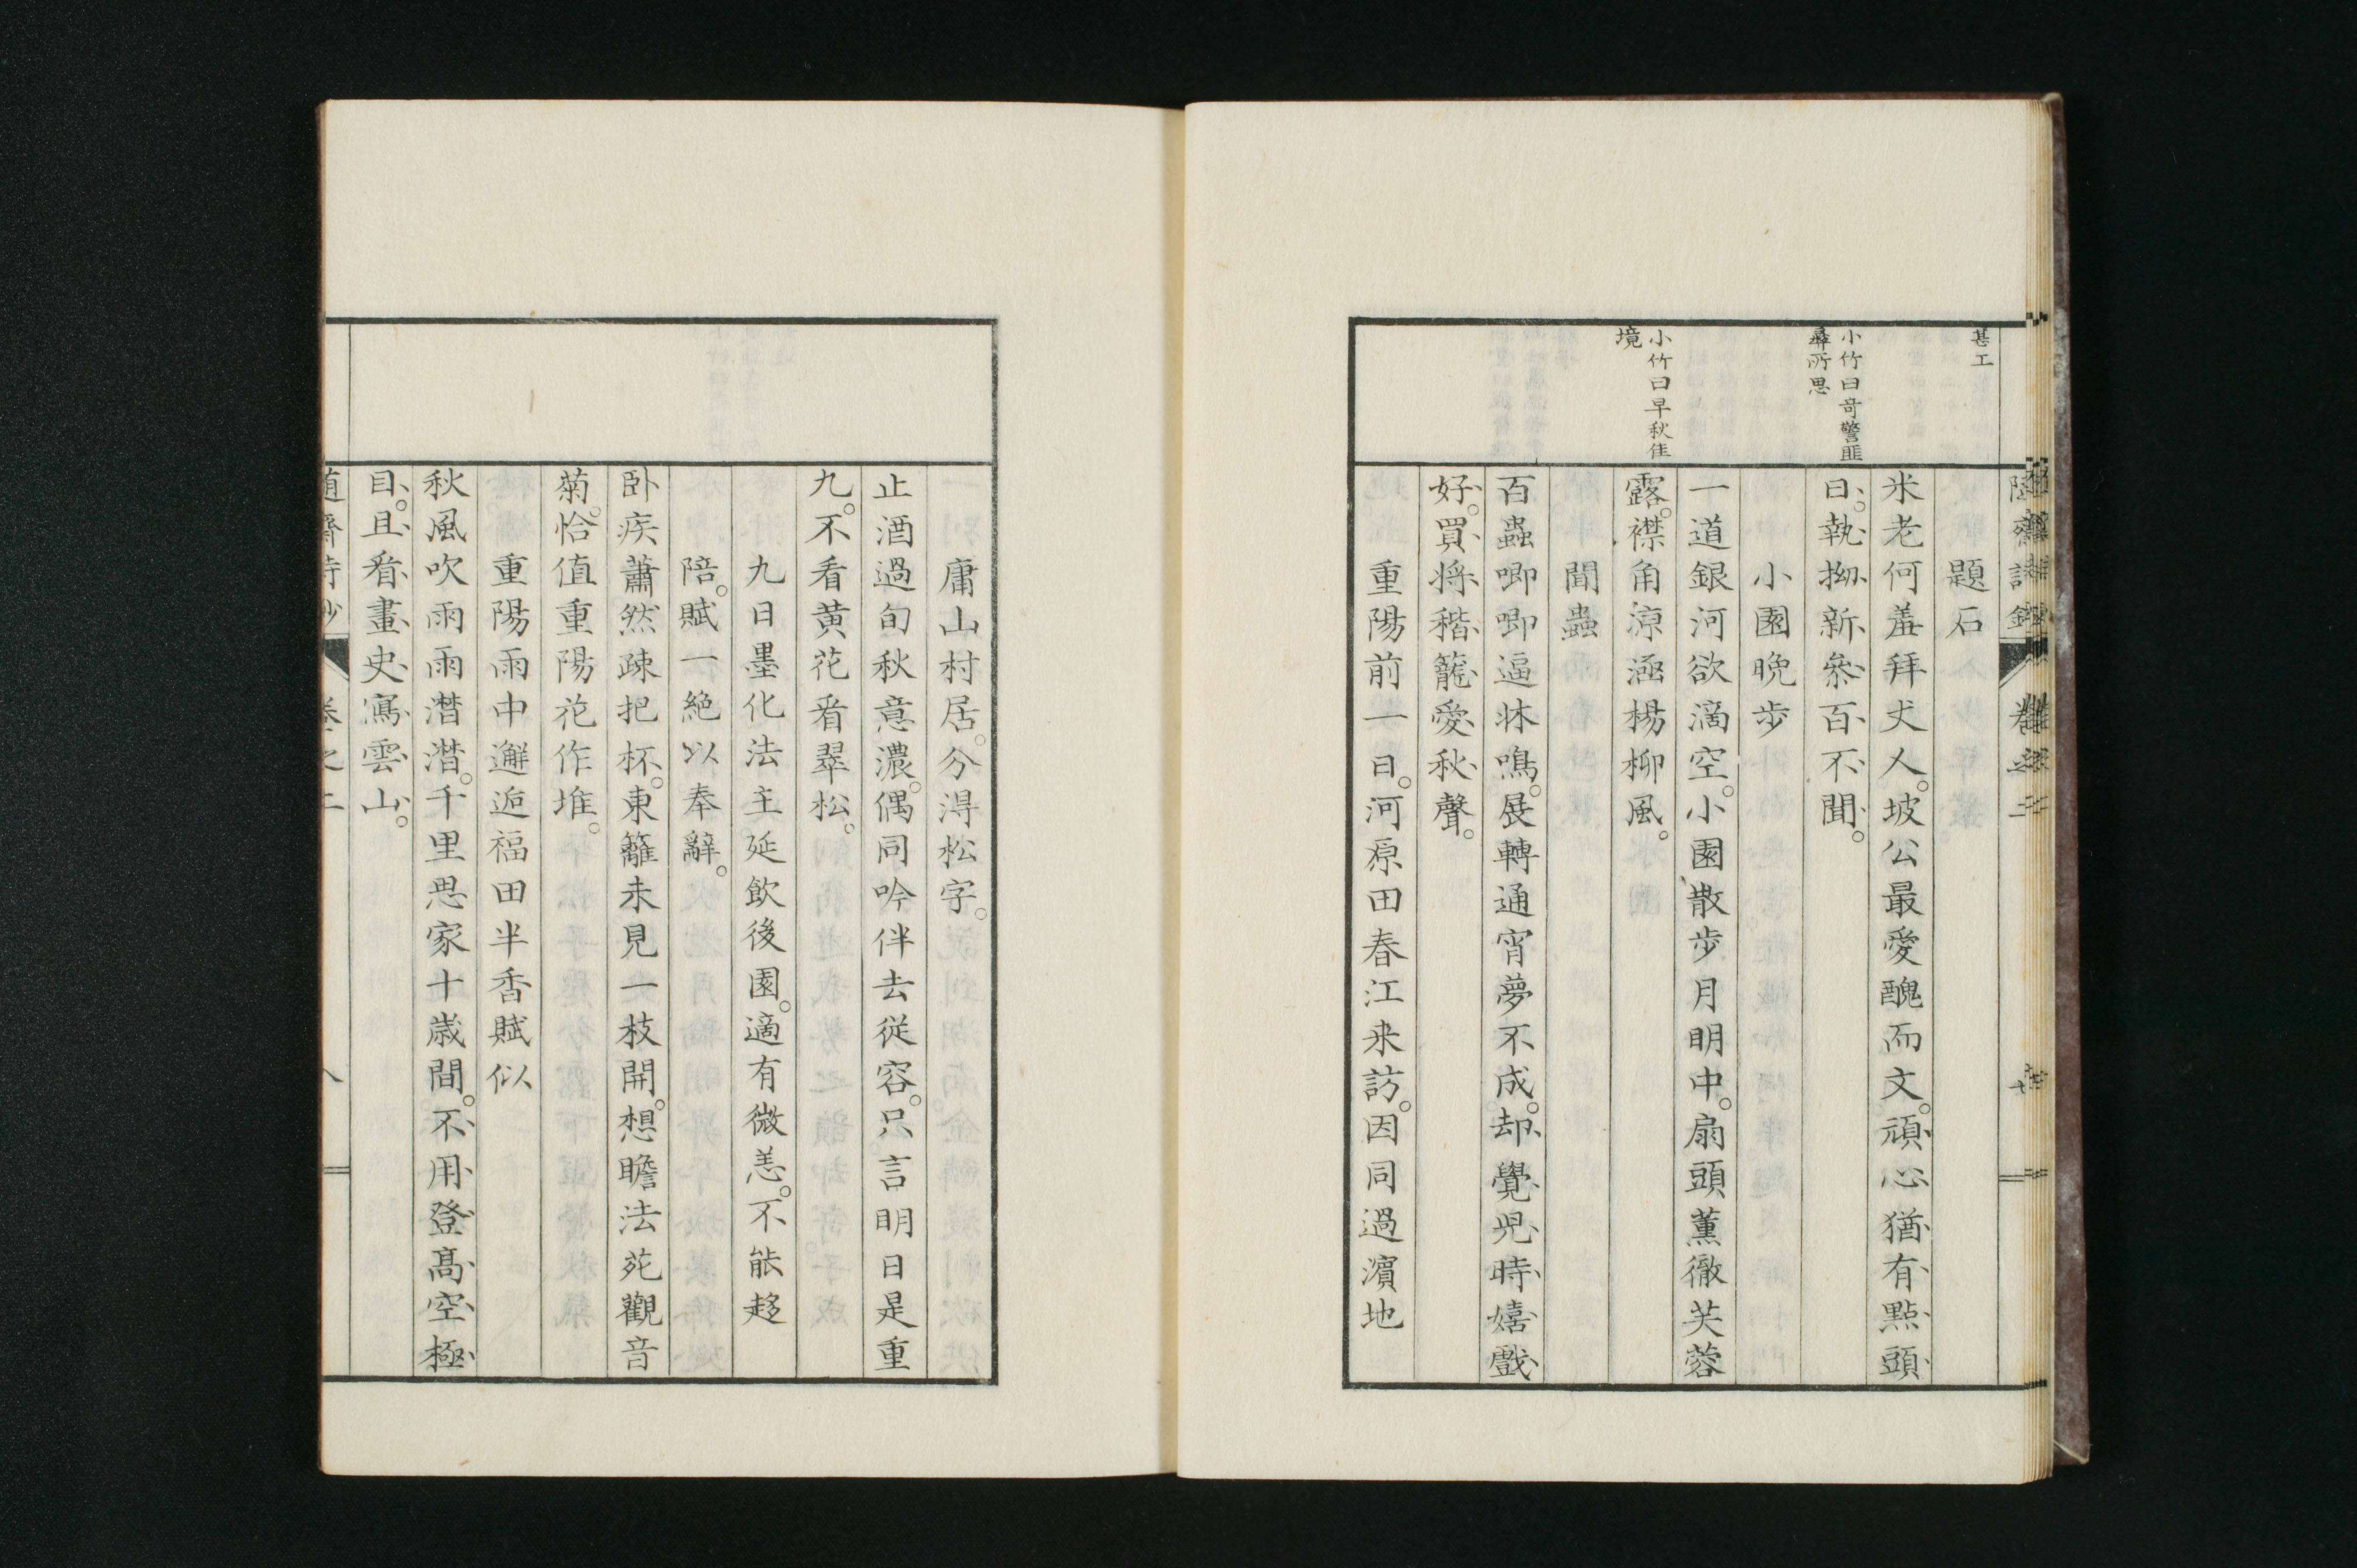 甚工
小竹曰奇警匪
彛所思
小竹曰早秋佳
境
題石
米老何羞拜丈人。坡公最愛醜而文。頑心猶有點頭
日。執拗新參百不聞。
小園晩步
一道銀河欲滴空。小園散步月明中。扇頭薰徹芙蓉
露。襟角涼涵楊柳風。
聞蟲
百蟲喞喞逼牀鳴。展轉通宵夢不成。却覺兒時嬉戲
好。買將稭籠愛秋聲。
重陽前一日。河原田春江来訪。因同過濵地
庸山村居。分得松字。
止酒過旬秋意濃。偶同吟伴去従容。只言明日是重
九。不看黄花看翠松。
九日墨化法主延飲後園。適有微恙。不能趍
陪。賦一絶以奉辭。
卧疾蕭然疎把杯。東籬未見一枝開。想瞻法苑觀音
菊。恰值重陽花作堆。
重陽雨中邂逅福田半香賦似
秋風吹雨雨潜潜。千里思家十歲間。不用登高空極
目。且看畫史寫雲山。
卷之二